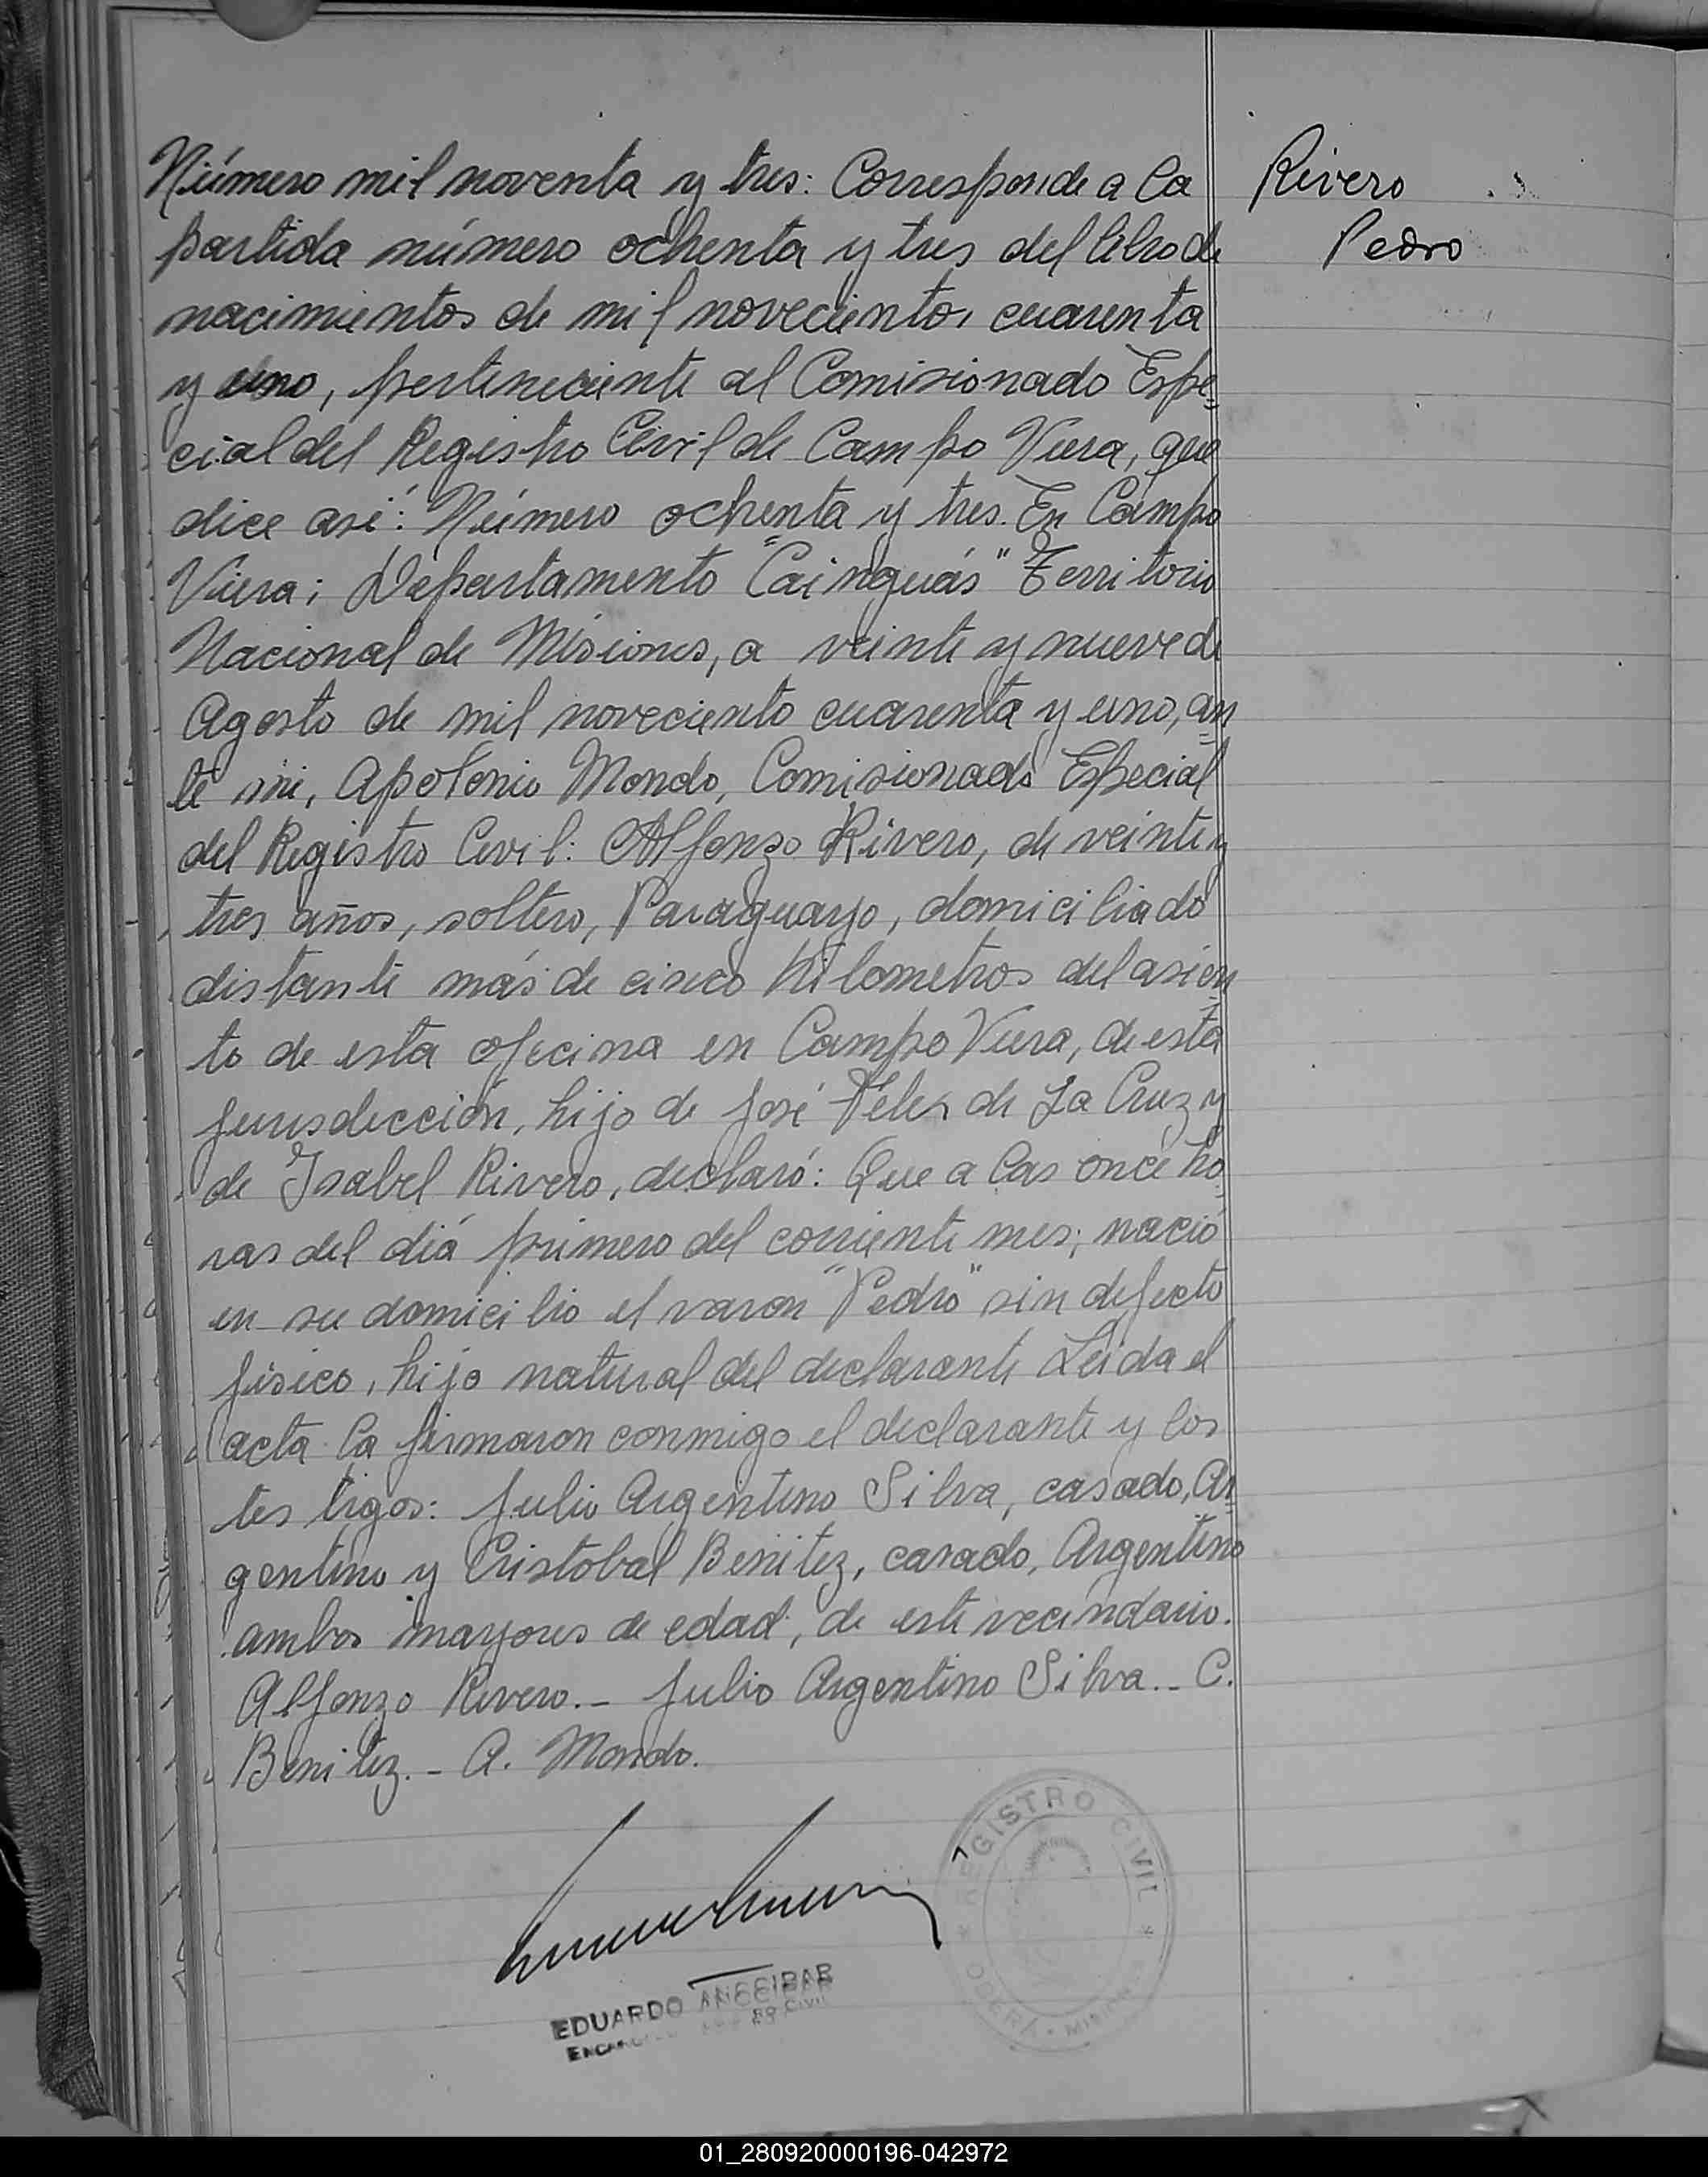 Número mil noventa y tres: Corresponde a la
partida número ochenta y tres del libro de
nacimientos de mil novecientos cuarenta
y uno, perteneciente al Comisionado Espe=
cial del Registro Civil de Campo Viera, que
dice asi: Número ochenta y tres. En Campo
Viera; Departamento "Cainguás" Territorio
Nacional de Misiones, a veinte y nueve de
Agosto de mil noveciento cuarenta y uno, an=
te mi, Apolonio Mondo, Comisionado Especial
del Registro Civil: Alfonzo Rivero, de veinte y
tres años, soltero, Paraguayo, domiciliado
distante más de cinco kilometros del asien=
to de esta oficina en Campo Viera, de esta
jurisdicción, hijo de José Feles de La Cruz y
de Isabel Rivero, declaró: Que a las once ho=
ras del diá primero del corriente mes; nació
en su domicilio el varon "Pedro" sin defecto
fisico, hijo natural del declarante Leida el
acta la firmaron conmigo el declarante y los
testigos: Julio Argentino Silva, casado, Ar=
gentino y Cristobal Benitez, casado, Argentino
ambos mayores de edad, de este vecindario.
Alfonzo Rivero.- Julio Argentino Silva.- C.
Benitez.- A. Mondo.
Rivero
Pedro
REGISTRO CIVIL
OBERÁ - MISIONES
EDUARDO ANCCIBAR
01_280920000196-042972